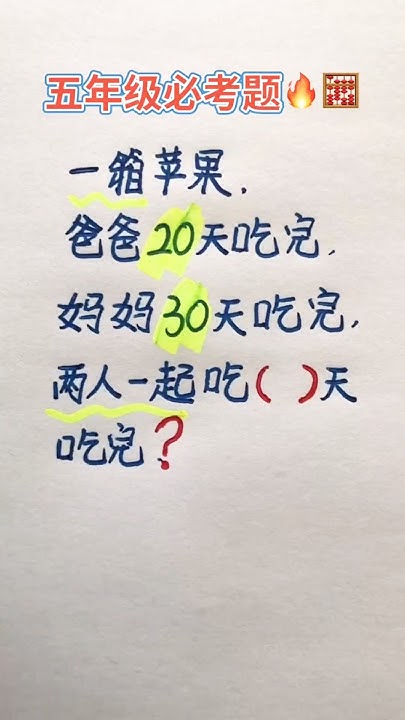 五年级必考题🔥🧮
一箱苹果.
爸爸20天吃完.
妈妈30天吃完,
两人一起吃( )天
吃完?